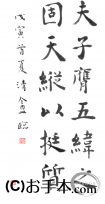 夫子膺五緯之
固天縱以挺質
戊寅首夏清盦臨
(C)お手本.com